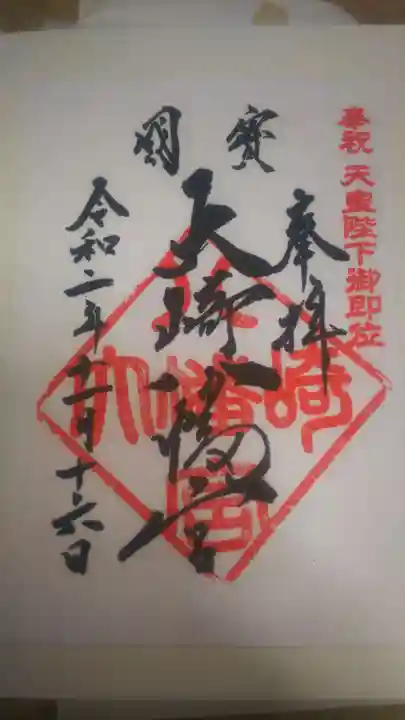 奉祝 天皇陛下御即位
奉拝
國寳
大崎八幡宮
令和二年十一月十六日